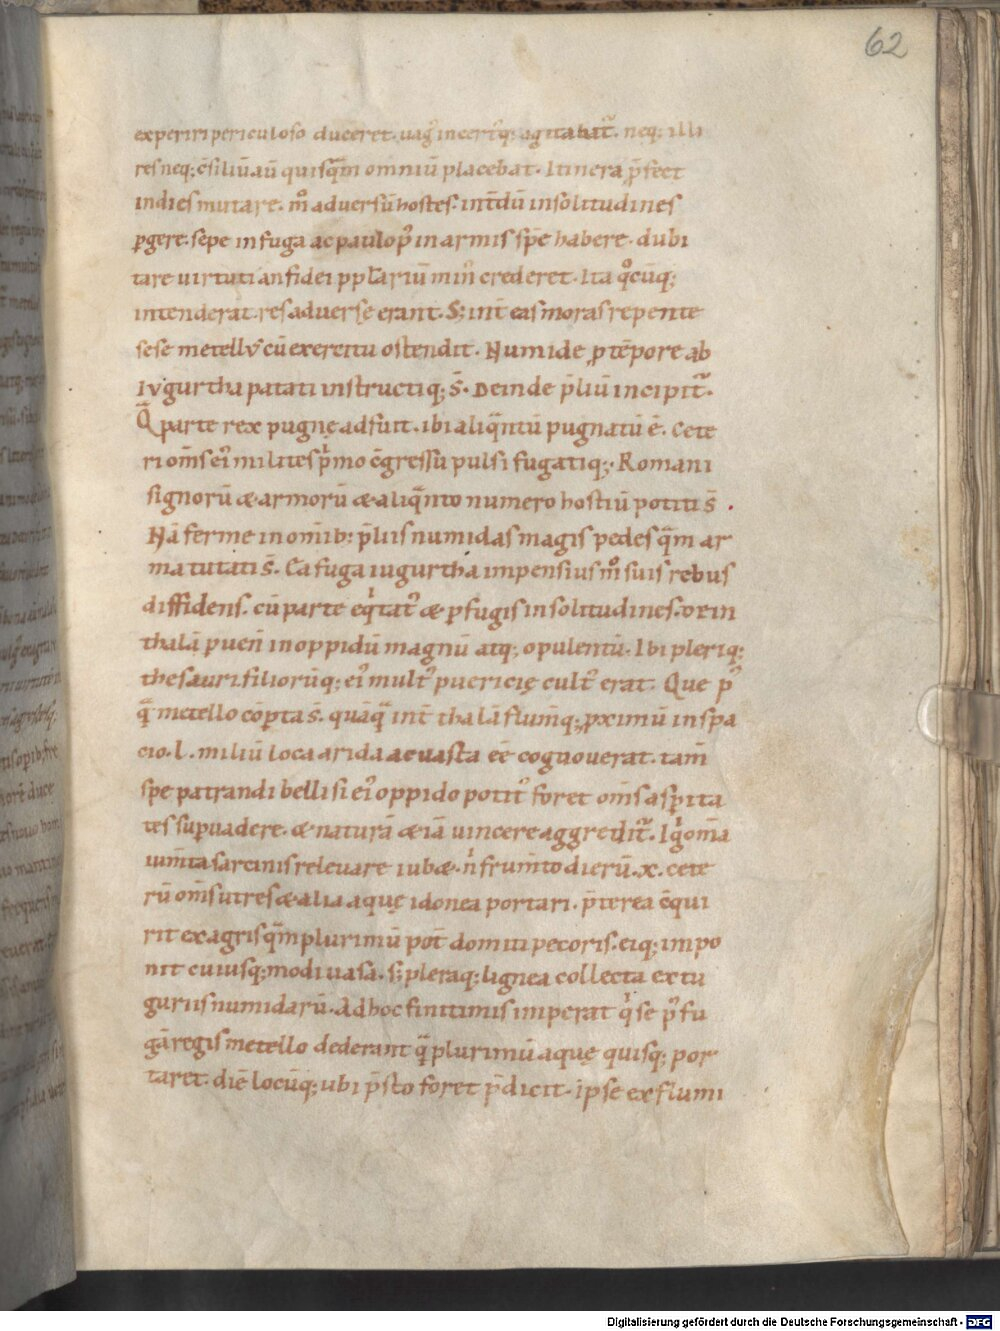 62
experiri periculoso duceret. uag᷒ incertq; agitabat᷒. neq; illi
res neq; c̄siliū aū quisq̄m omniū placebat. Itinera p̄fect
indies mutare. m̊ aduersū hostes. int̄dū insolitudines
ꝑgere. sepe in fuga ac paulo p᷒ in armis sp̄e habere. dubi
tare uirtuti an fidei pplariū min᷒ crederet. Ita q̊cūq;
intenderat. res aduersę erant. S; int̄ eas moras repente
sese metellꝰ cū exercitu ostendit. Numide ꝑ tēpore ab
Iugurtha patati instructiq; s̄. Deinde p̄liū incipit᷒.
Q̄ parte rex pugnę adfuit. ibi aliq̄ntū pugnatū ē. Cete
ri om̄s ei᷒ milites pͥmo c̄gressu pulsi fugatiq;. Romani
signorū & armorū & aliq̄nto numero hostiū potiti s̄.
Nā ferme in om̄ib: p̄liis numidas magis pedes q̄m ar
ma tutati s̄. Ea fuga iugurtha impensius m̊ suis rebus
diffidens. cū parte eqͥtat᷒ & ꝑfugis in solitudines. Dein
thalā pueñ in oppidū magnū atq; opulentū. Ibi pleriq;
thesauri filiorūq; ei᷒ mult᷒ puericię cult᷒ erat. Que p᷒
q̄ metello cōpta s̄. quāq̄ int̄ thalā flum̄q; ꝓximū in spa
cio. l. miliū loca arida ac uasta eē cognouerat. tam̄
spe patrandi belli si ei᷒ oppido potit᷒ foret om̄s asꝑita
tes suꝑuadere. & naturā & iā uincere aggredit᷒. Igͥ om̄a
ium̄ta sarcinis releuare iub&. nͥ frum̄to dierū. x. cete
rū om̄s utres & alia aquę idonea portari. p̄terea c̄qui
rit ex agris q̄m plurimū pot̄ domiti pecoris. eiq; impo
nit cuiusq; modi uasa. s; pleraq; lignea collecta ex tu
guriis numidarū. Ad hoc finitimis imperat qͥ se p᷒ fu
gā regis metello dederant q̄ plurimū aquę quisq; por
taret. diē locūq; ubi p̄sto foret p̄dicit. ipse ex flumi
Digitalisierung gefördert durch die Deutsche Forschungsgemeinschaft - DFG